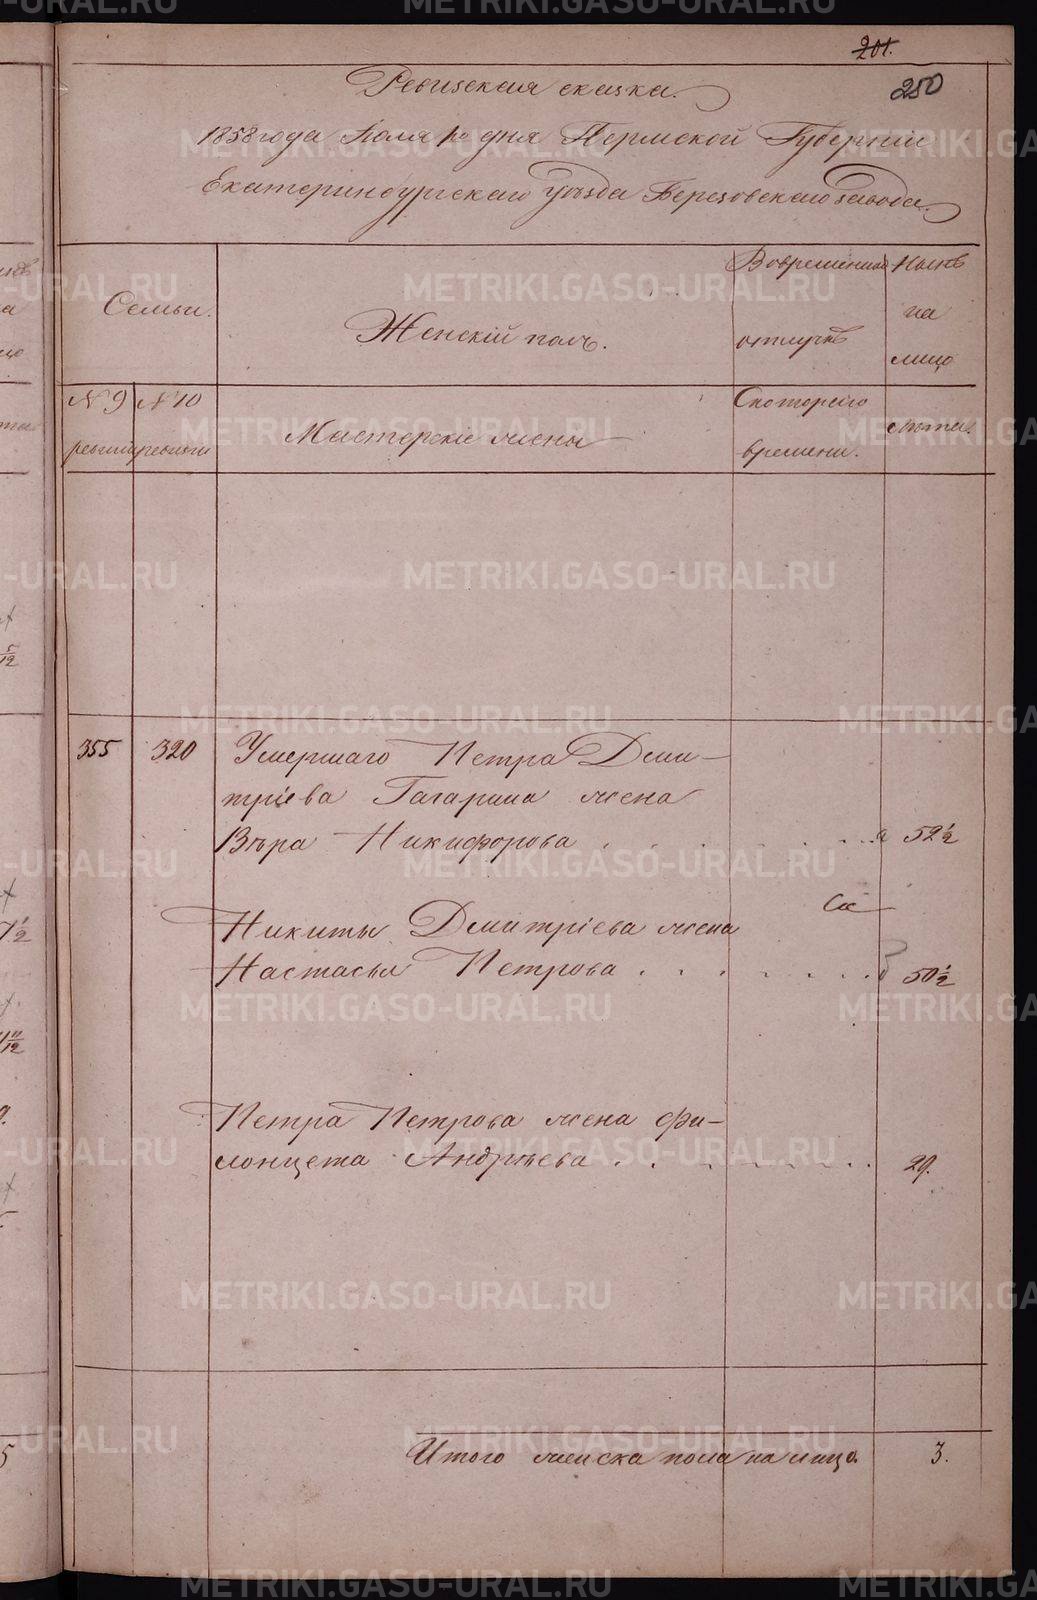 201.
250
Ревизская сказка.
1858 года Июля 1го дня Пермской Губернии
Екатеринбургскаго уѣзда Березовскаго завода.
Семьи.
Женскій полъ.
Во временной
отлучкѣ
Нынѣ
на
лицо
№ 9
ревизіи
№ 10
ревизіи
Мастерскіе жены
Скотораго
времени.
лѣта
355 320 Умершаго Петра Дми-
тріева Гагарина жена
Вѣра Никифорова . . . . . . . . 52 1/2
Никиты Дмитріева жена
Настасья Петрова . . . . . . . . 50 1/2
Петра Петрова жена Фи-
лонцета Андрѣева . . . . . . . . 29.
Итого женска пола на лицо 3.
METRIKI.GASO-URAL.RU